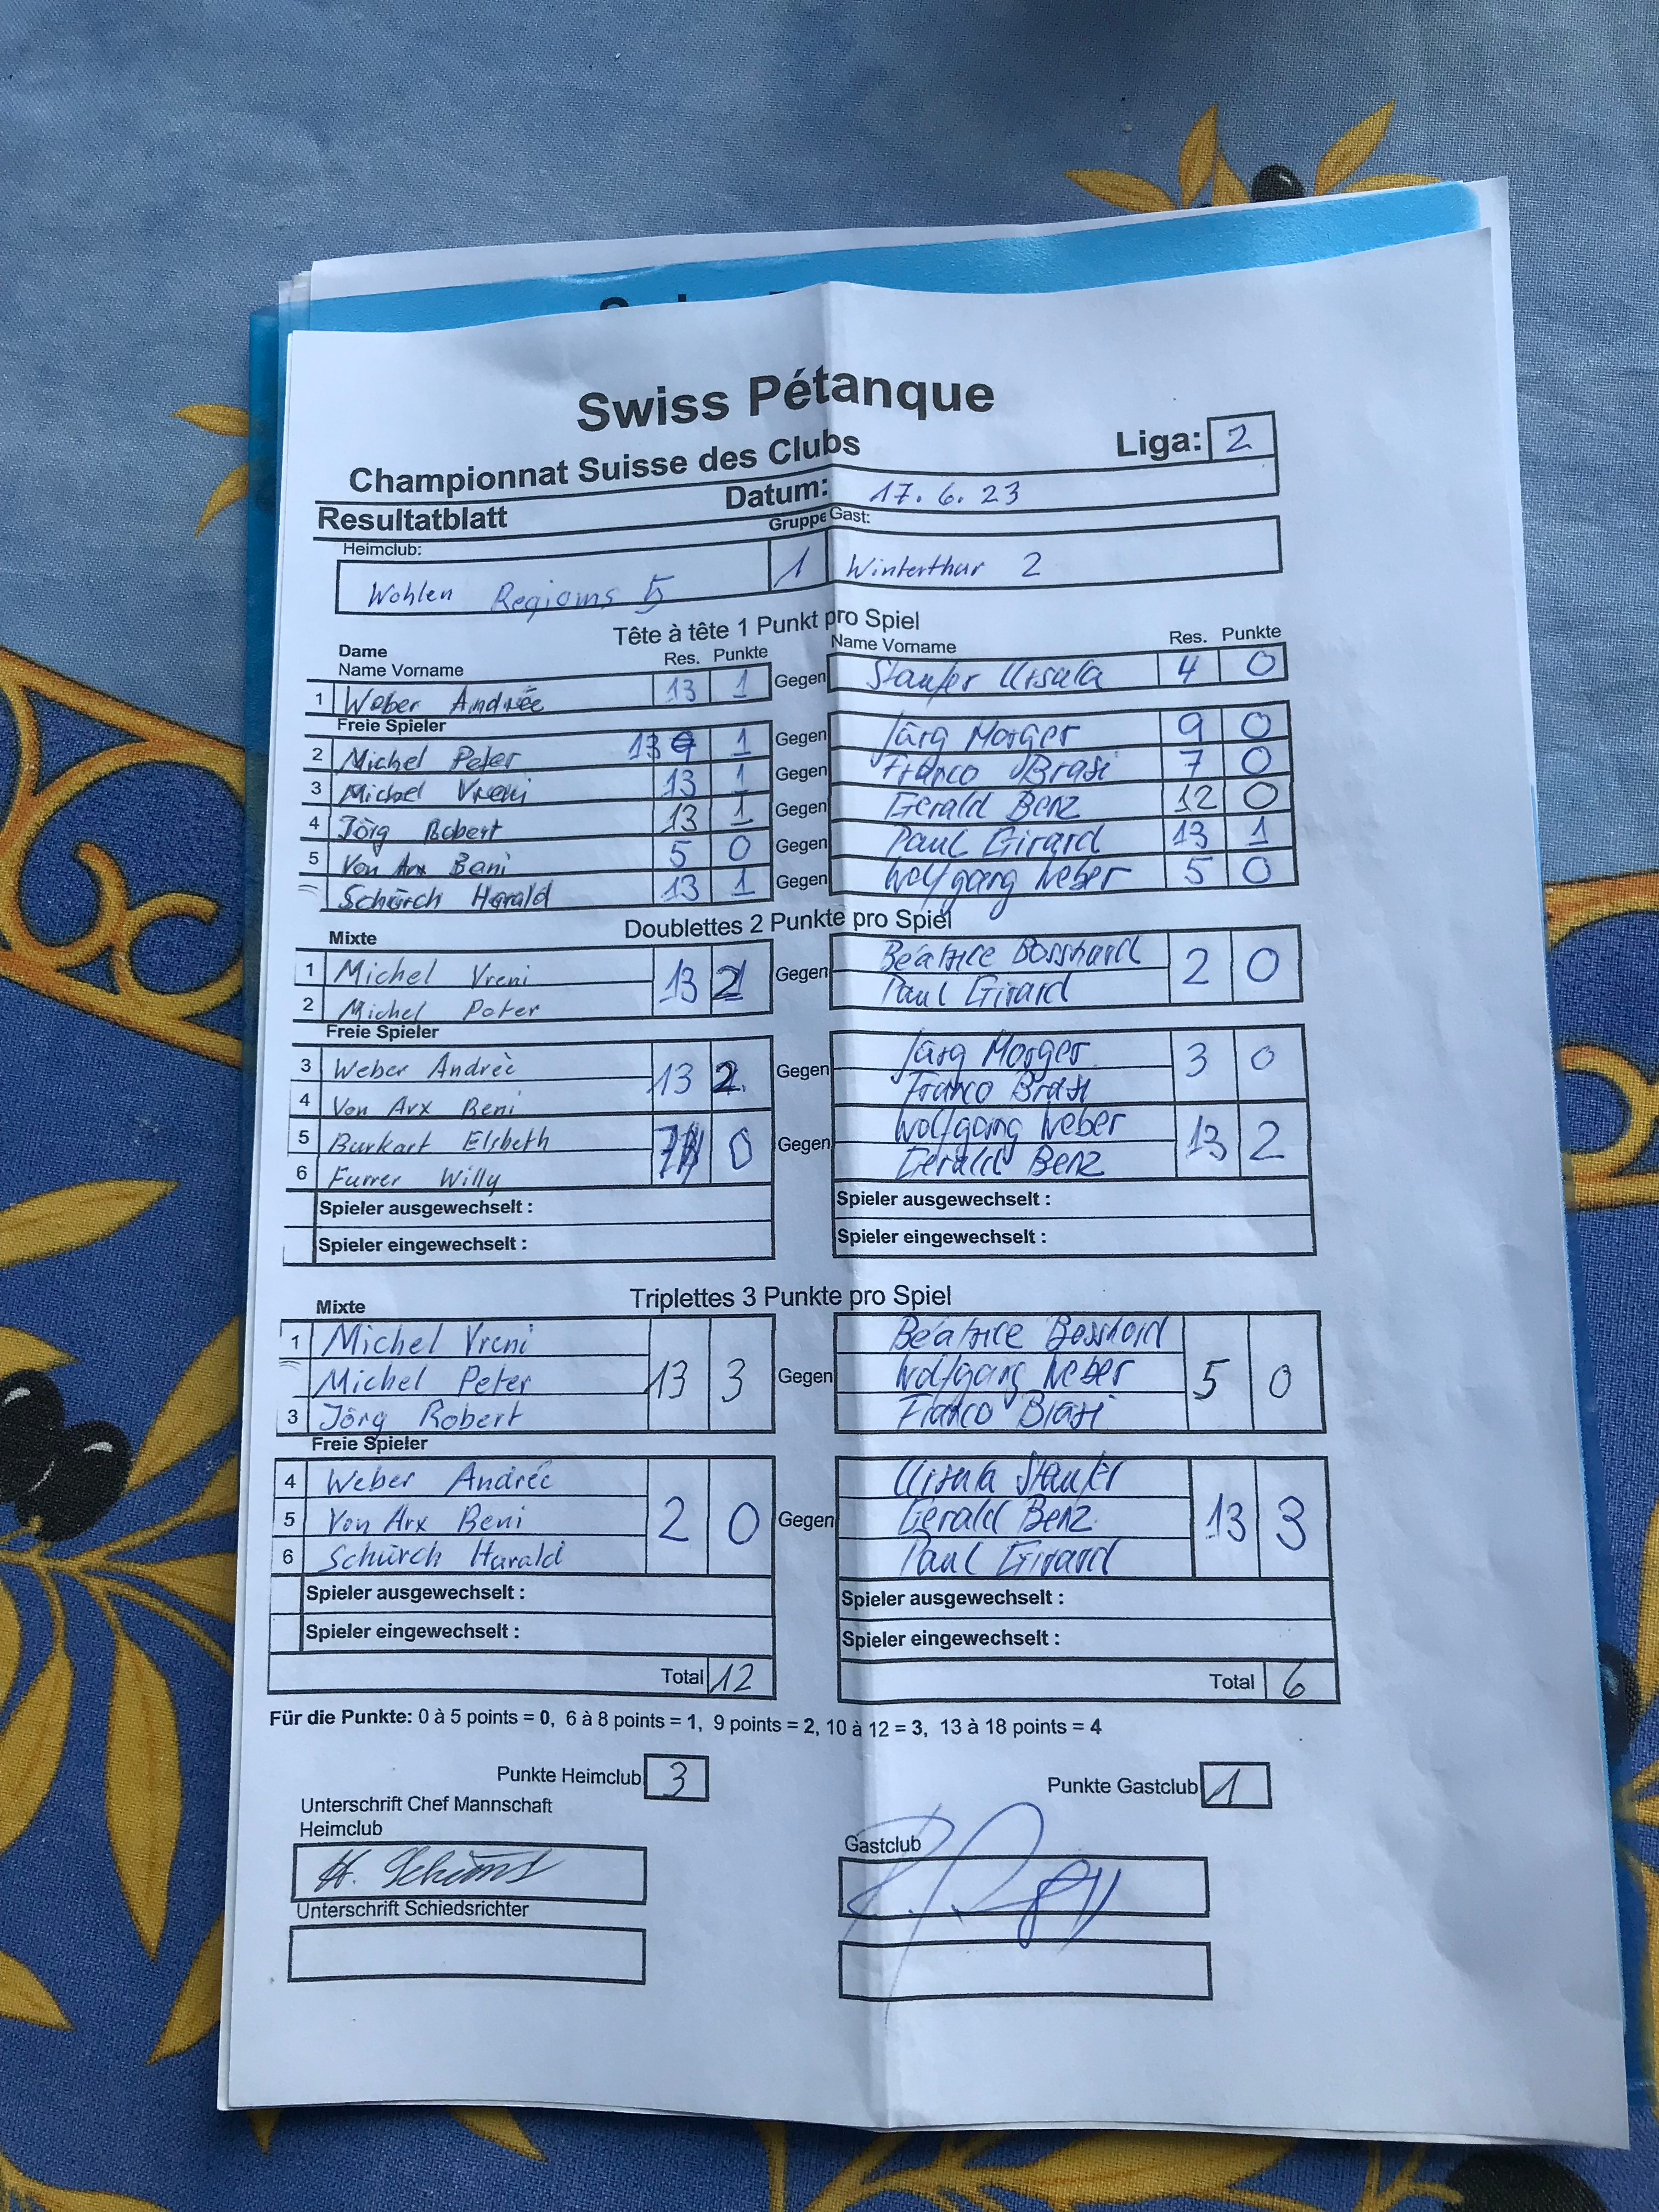 Swiss Pétanque
Championnat Suisse des Clubs Liga: 2
Resultatblatt Datum: 17. 6. 23
Heimclub: Gruppe Gast:
Wohlen Regioms 5 1 Winterthur 2
Tête à tête 1 Punkt pro Spiel
Dame
Name Vorname Res. Punkte Name Vorname Res. Punkte
1 Weber Andrée 13 1 Gegen Staufer Ursula 4 0
Freie Spieler
2 Michel Peter 13 1 Gegen Jürg Morger 9 0
3 Michel Vreni 13 1 Gegen Franco Brasi 7 0
4 Jörg Robert 13 1 Gegen Gerald Benz 12 0
5 Von Arx Beni 5 0 Gegen Paul Girard 13 1
Schürch Harald 13 1 Gegen Wolfgang Weber 5 0
Doublettes 2 Punkte pro Spiel
Mixte
1 Michel Vreni 13 2 Gegen Béatrice Bosshard 2 0
2 Michel Peter Paul Girard
Freie Spieler
3 Weber Andreè 13 2 Gegen Jürg Morger 3 0
4 Von Arx Beni Franco Brasi
5 Burkart Elsbeth 0 Gegen Wolfgang Weber 13 2
6 Furrer Willy Gerald Benz
Spieler ausgewechselt : Spieler ausgewechselt :
Spieler eingewechselt : Spieler eingewechselt :
Triplettes 3 Punkte pro Spiel
Mixte
1 Michel Vreni Béatrice Bosshard
Michel Peter 13 3 Gegen Wolfgang Weber 5 0
3 Jörg Robert Franco Brasi
Freie Spieler
4 Weber Andrée Ursula Staufer
5 Von Arx Beni 2 0 Gegen Gerald Benz 13 3
6 Schürch Harald Paul Girard
Spieler ausgewechselt : Spieler ausgewechselt :
Spieler eingewechselt : Spieler eingewechselt :
Total 12 Total 6
Für die Punkte: 0 à 5 points = 0, 6 à 8 points = 1, 9 points = 2, 10 à 12 = 3, 13 à 18 points = 4
Punkte Heimclub 3 Punkte Gastclub 1
Unterschrift Chef Mannschaft
Heimclub Gastclub
Unterschrift Schiedsrichter